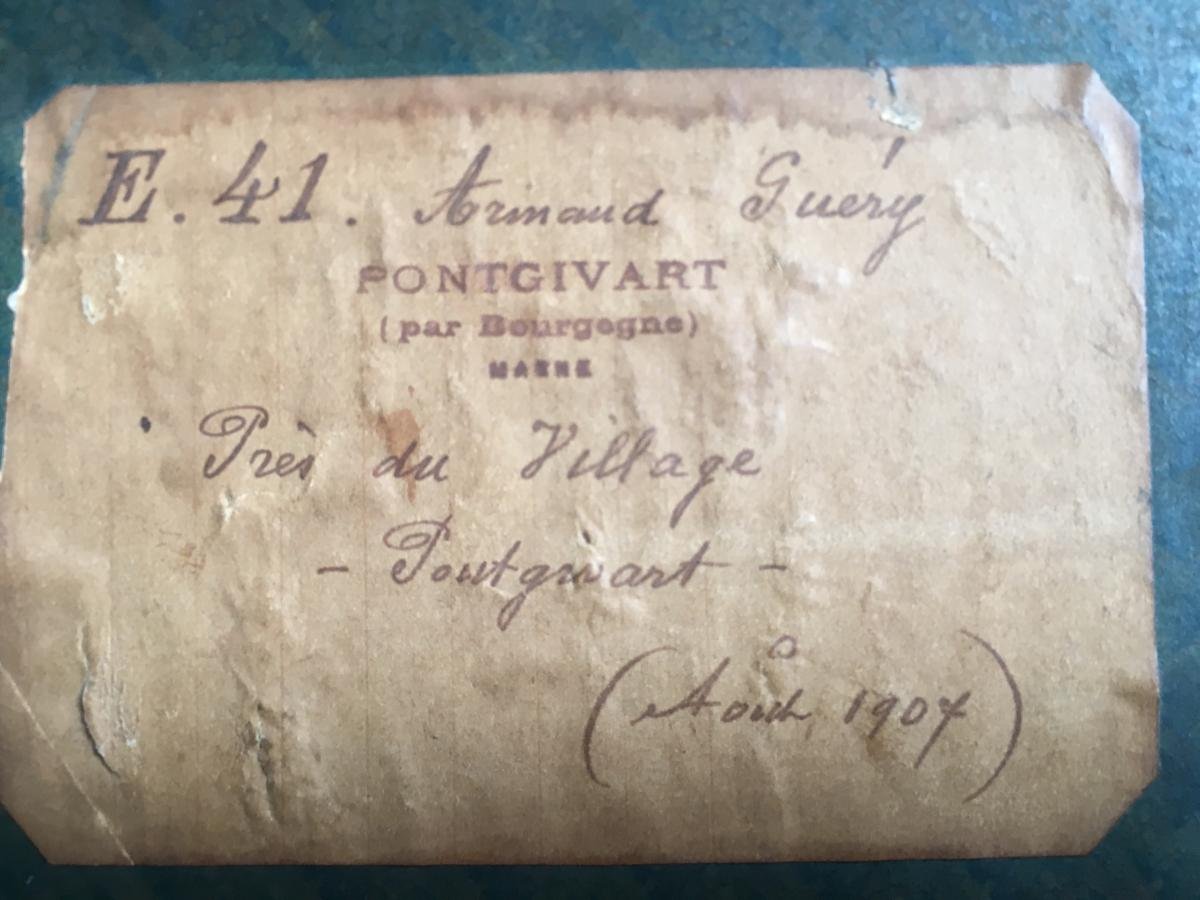 E. 41. Armand Guéry
PONTGIVART
(par Bourgogne)
MARNE
Près du Village
- Pontgivart -
(Août 1907)